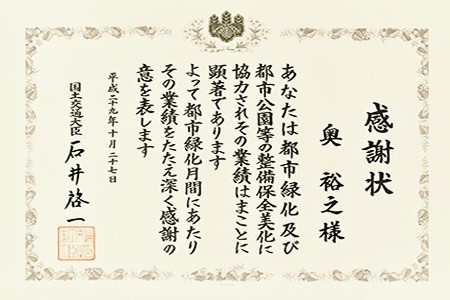 感謝状
奥 裕之様
あなたは都市緑化及び
都市公園等の整備保全美化に
協力されその業績はまことに
顕著であります
よって都市緑化月間にあたり
その業績をたたえ深く感謝の
意を表します
平成二十九年十月二十七日
国土交通大臣 石井啓一